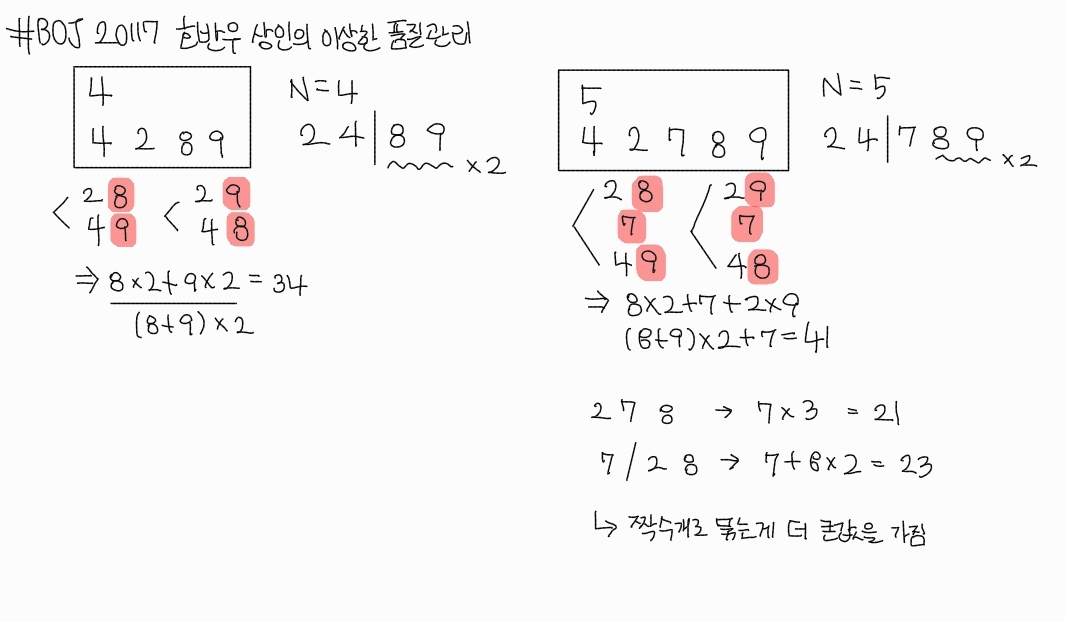 #BOJ 20117 호반우 상인의 이상한 품질관리
4
4 2 8 9
N=4
2 4 | 8 9
×2
< 2 8
4 9
< 2 9
4 8
⇒ 8×2+9×2 = 34
(8+9)×2
5
4 2 7 8 9
N=5
2 4 | 7 8 9
×2
< 2 8
7
4 9
< 2 9
7
4 8
⇒ 8×2+7+2×9
(8+9)×2+7=41
2 7 8 → 7×3 = 21
7 / 2 8 → 7+8×2 = 23
↳ 짝수개로 묶는게 더 큰값을 가짐